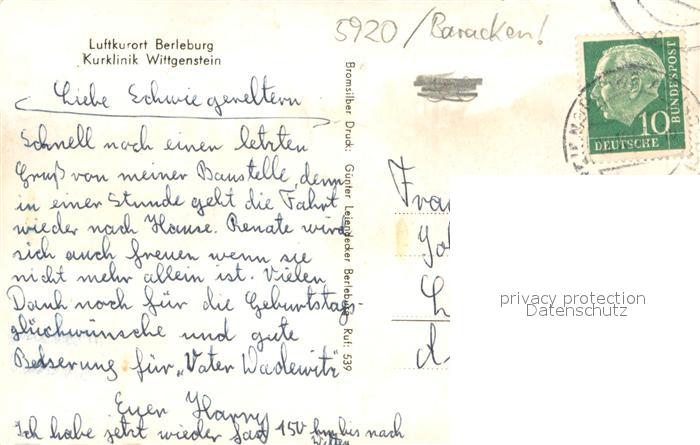 5920 / Baracken!
Luftkurort Berleburg
Kurklinik Wittgenstein
Liebe Schwiegereltern
Schnell noch einen letzten
Gruß von meiner Baustelle, denn
in einer Stunde geht die Fahrt
wieder nach Hause. Renate wird
sich auch freuen wenn sie
nicht mehr allein ist. Vielen
Dank noch für die Geburtstags-
glückwünsche und gute
Besserung für „Vater Wadewitz"
Euer Harry
Ich habe jetzt wieder fast 150 km bis nach
Witten
Bromsilber Druck: Günter Leiendecker Berleburg Ruf: 539
10
DEUTSCHE
BUNDESPOST
privacy protection
Datenschutz